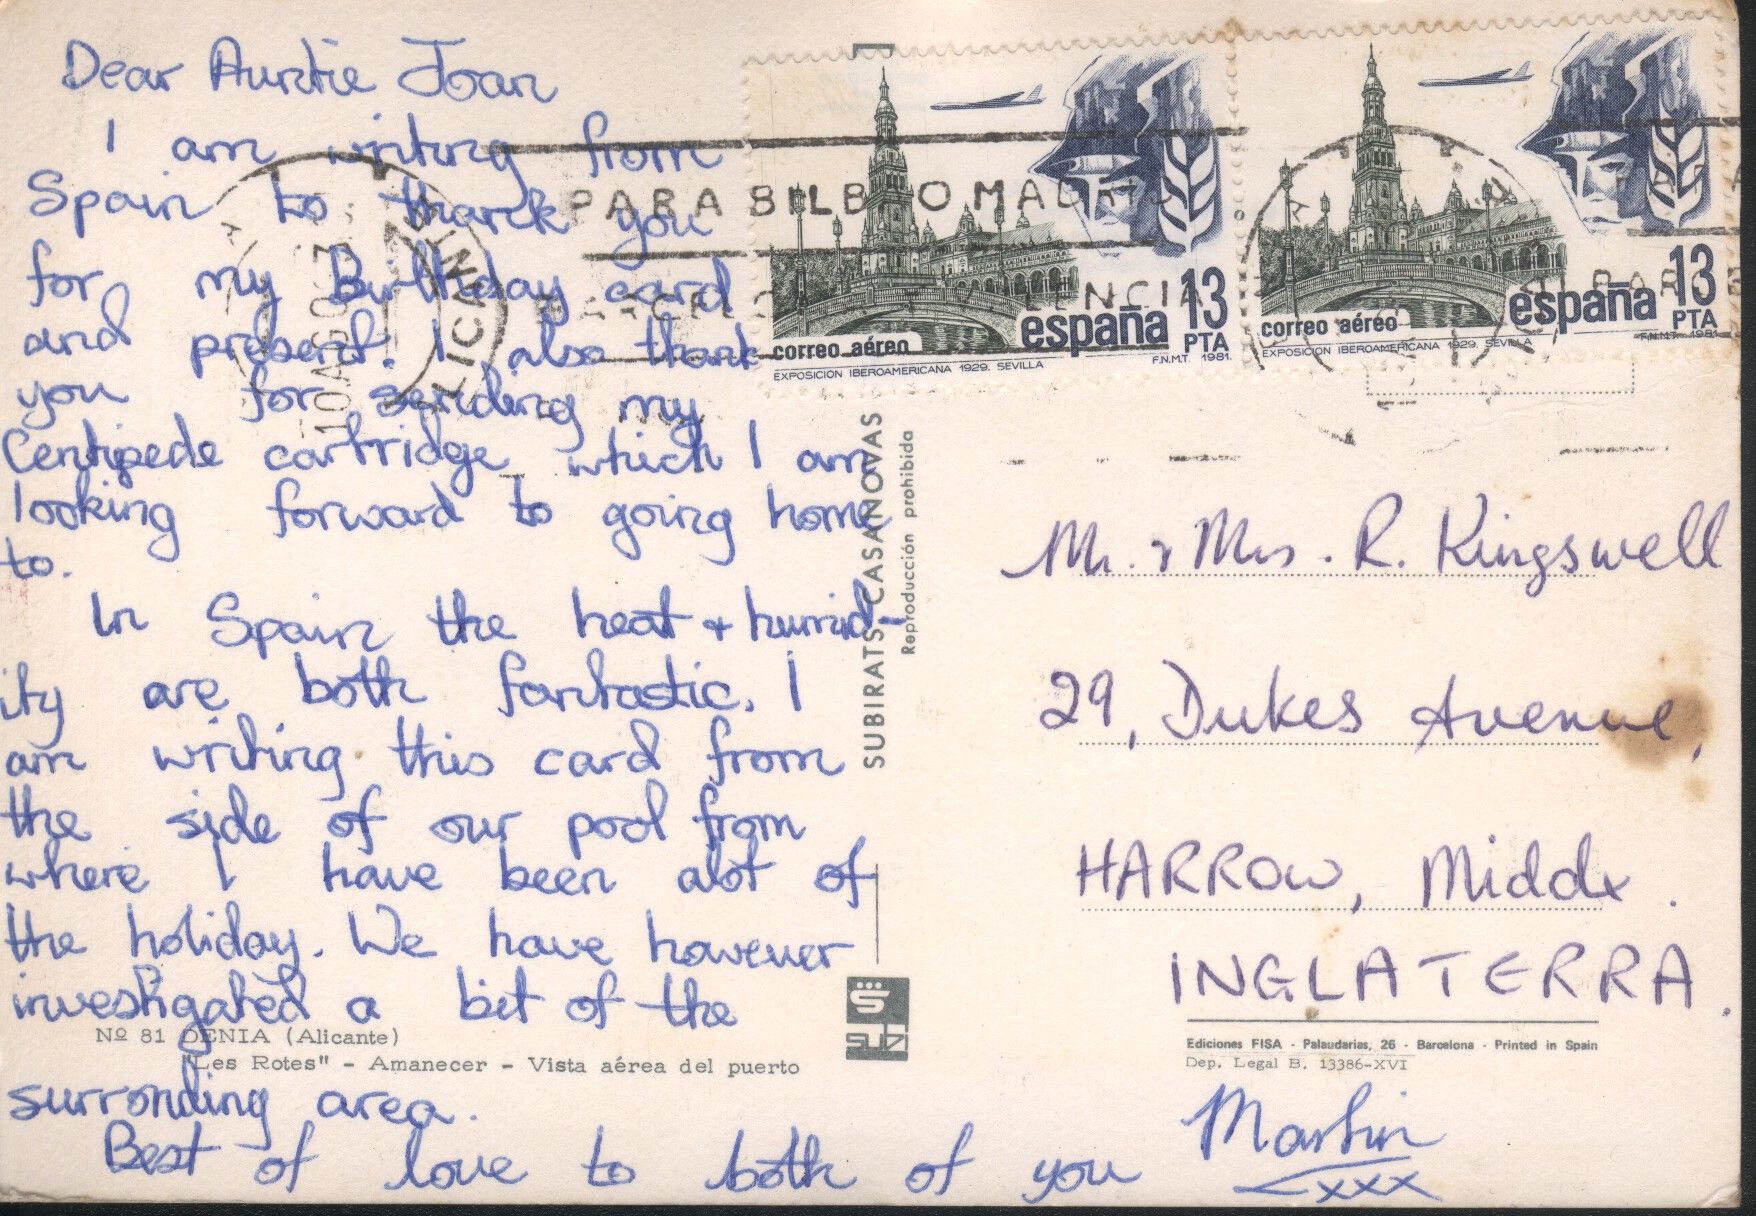 Dear Auntie Joan
I am writing from
Spain to thank you
for my Birthday card
and present. I also thank
you for sending my
Centipede cartridge which I am
looking forward to going home
to.
In Spain the heat + humid-
ity are both fantastic. I
am writing this card from
the side of our pool from
where I have been alot of
the holiday. We have however
investigated a bit of the
surronding area.
Best of love to both of you
Martin
xxx
Nº 81 DENIA (Alicante)
"Les Rotes" - Amanecer - Vista aérea del puerto
SUBIRATS CASANOVAS
Reproducción prohibida
S
SUBI
PARA BILBAO MADRID
BARCELONA VALENCIA
ALICANTE
10 AGO
correo aéreo
españa
13
PTA
EXPOSICION IBEROAMERICANA 1929. SEVILLA
F.N.M.T. 1981.
correo aéreo
españa
13
PTA
EXPOSICION IBEROAMERICANA 1929. SEVILLA
F.N.M.T. 1981.
Mr. & Mrs. R. Kingswell
29, Dukes Avenue,
HARROW, Middx.
INGLATERRA.
Ediciones FISA - Palaudarias, 26 - Barcelona - Printed in Spain
Dep. Legal B. 13386-XVI